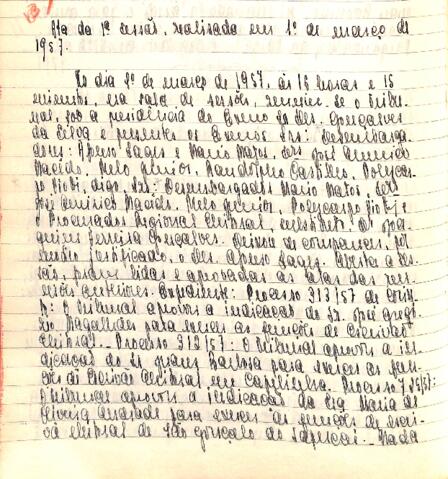 Ata da 1ª sessão, realizada em 1º de março de
1957.
No dia 1º de março de 1957, às 16 horas e 15
minutos, na sala de sessões, reuniu-se o Tribu-
nal, sob a presidência do Exmo Sr. Des. Gonçalves
da Silva e presentes os Exmos. Srs: Desembarga-
dores: Afonso Lages e Mario Matos, Drs José Americo
Macedo, Melo Junior, Randolpho Castilho,
digo, Srs: Desembargador Mario Matos, Drs
José Americo Macedo, Melo Junior, e
o Procurador Regional Eleitoral, substituto, dr Joa-
quim Ferreira Gonçalves. Deixou de comparecer, por
motivo justificado, o Des. Afonso Lages. Aberta a ses-
são, foram lidas e aprovadas as atas das reu-
niões anteriores. Expediente: Processo 313/57 de
: O Tribunal aprova a indicação do Sr. José
Magalhães para exercer as funções de Escrivão
Eleitoral. Processo 312/57: O Tribunal aprova a in-
dicação do Sr Barbosa para exercer as fun-
ções de Escrivão Eleitoral em Capelinha. Processo
O Tribunal aprova a indicação da Maria de
Oliveira Andrade para exercer as funções de escri-
vã eleitoral de São Gonçalo do Sapucaí. Nada